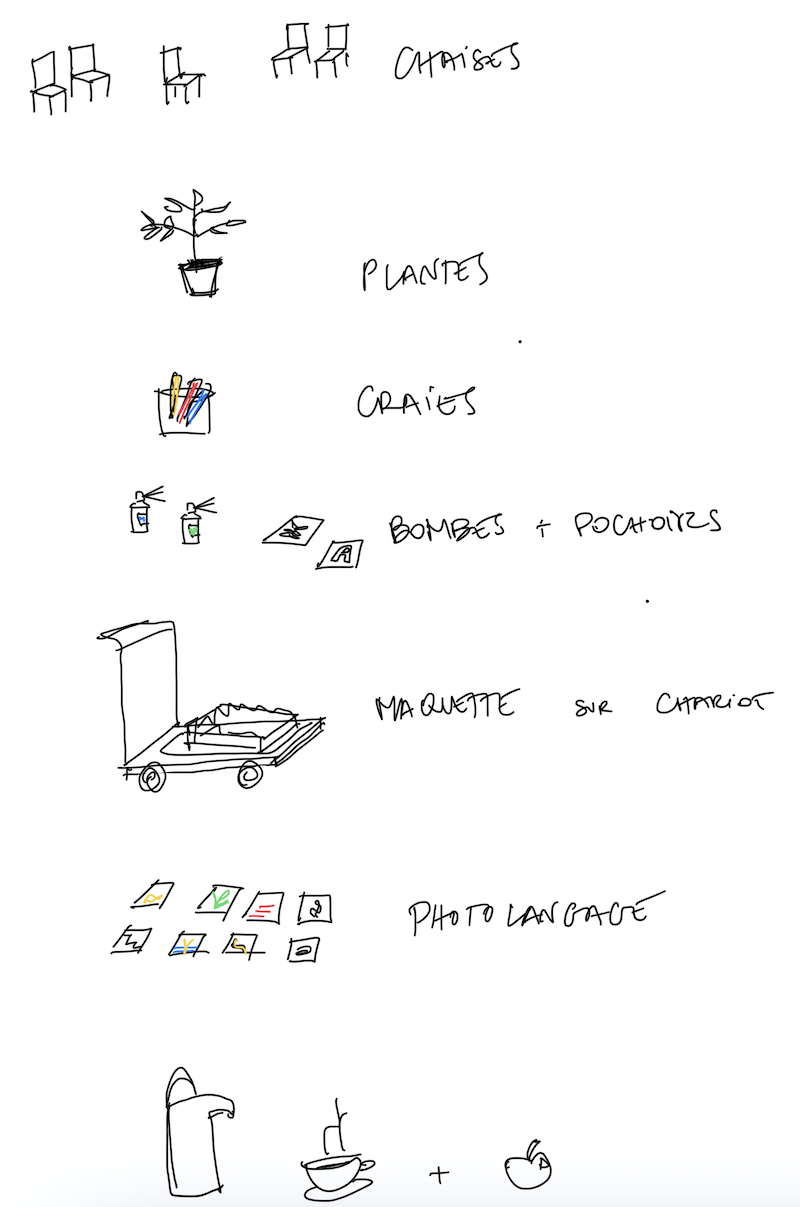 CHAISES
PLANTES
CRAIES
BOMBES + POCHOIRS
A
MAQUETTE SUR CHARIOT
PHOTOLANGAGE
+